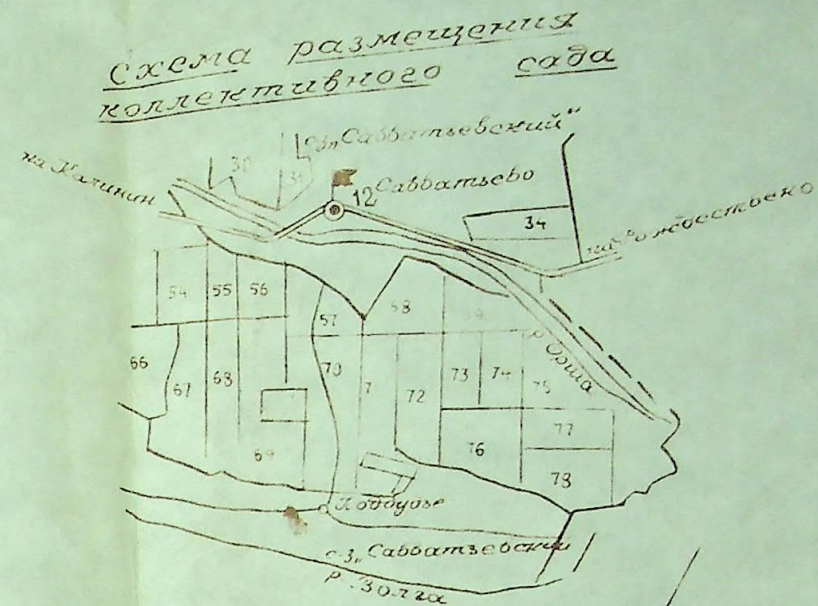 Схема размещения
коллективного сада
с-з „Савватьевский“
на Калинин
30
31
12 Савватьево
34
на Рождествено
54 55 56
57
58
59
р. Орша
66
67
68
70
7
72
73
74
75
69
76
77
78
Поддубье
с-з „Савватьевский
р. Волга